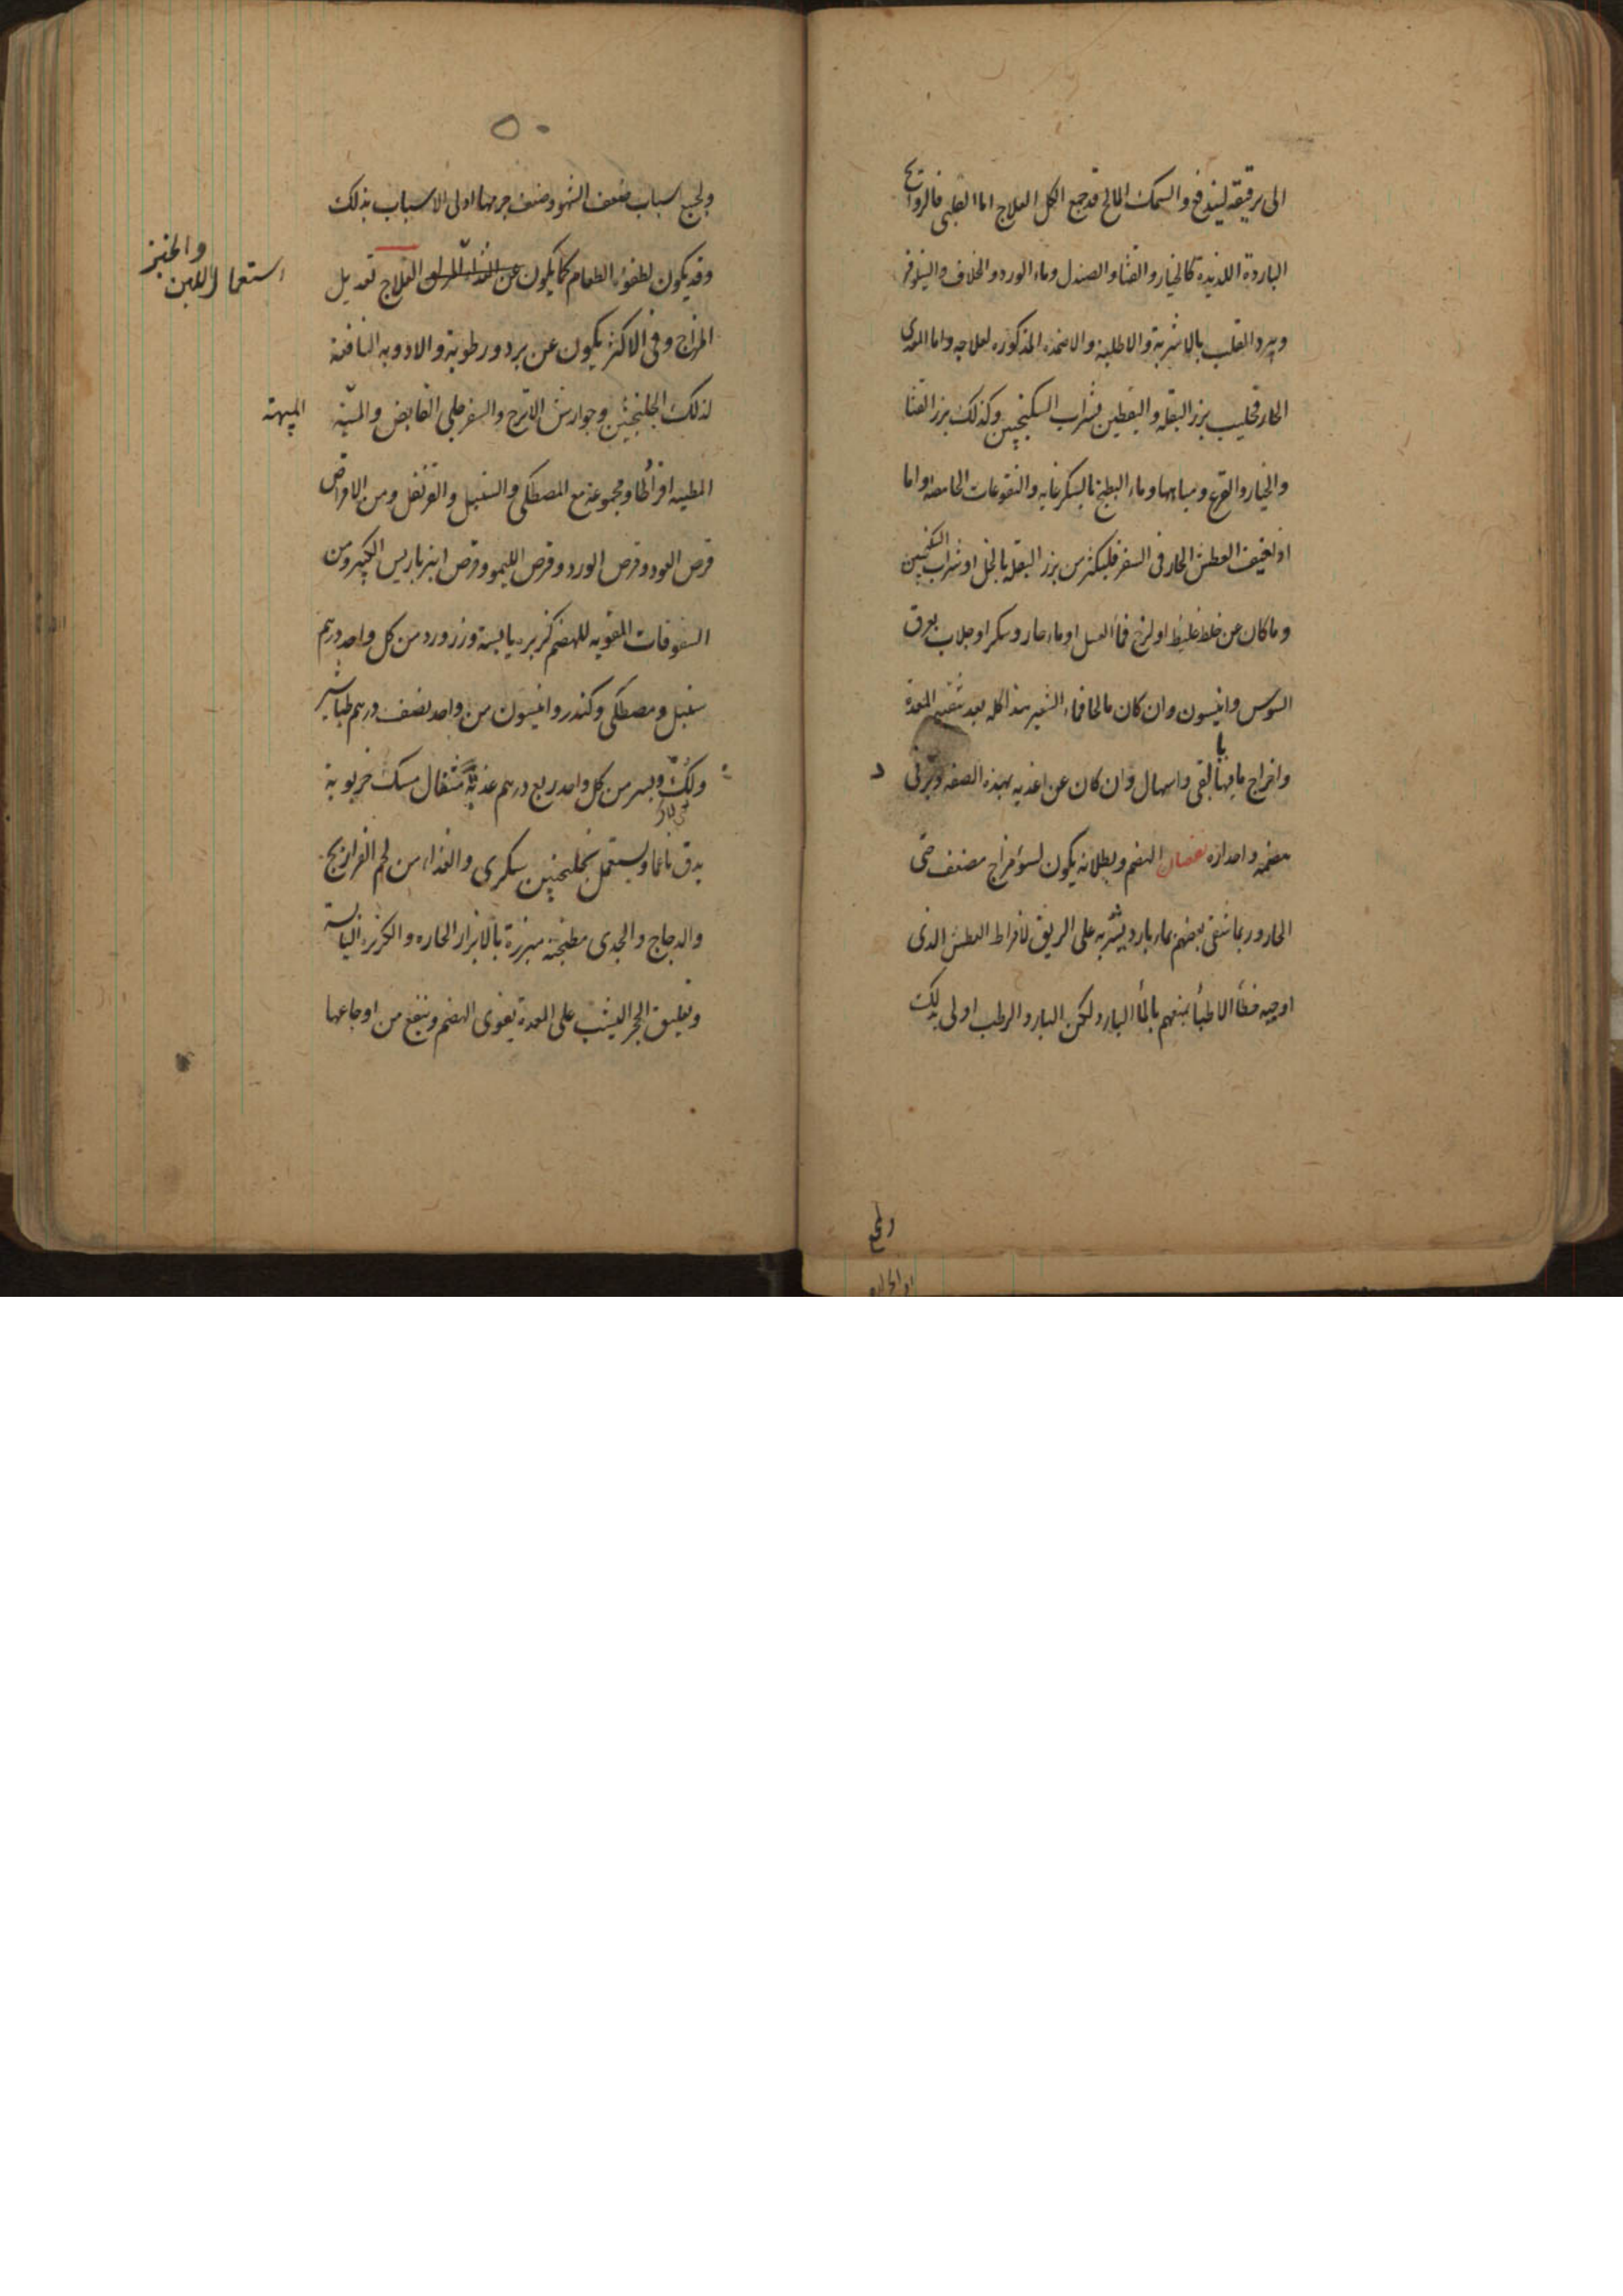 الى ترقيقه ليندفع والسمك المالح قد جمع الكل العلاج اما القلبى فالروائح
الباردة اللذيذة كالخيار والقثا والصندل وماء الورد والخلاف والنيلوفر
ويبرد القلب بالاشربة والاطلية والاضمده المذكوره لعلاجه واما المعدى
الحار فحليب بزر البقله واليقطين بشراب السكنجبين وكذلك بزر القثا
والخيار والقرع ومياهها وماء البطيخ بالسكر غايه والنقوعات الحامضه واما
اذا خيف العطش الحار فى السفر فليكثر من بزر البقله بالخل او شراب السكنجبين
وما كان عن خلط غليظ او لزج فماء العسل او ماء حار وسكر او جلاب بعرق
السوس وانيسون وان كان مالحا فماء الشعير هذا كله بعد تنقيه المعدة
واخراج ما فيها بالقى واسهال وان كان عن اغذيه بهذه الصفه
هضمه واحدازه نقصان الهضم وبطلانه يكون لسوء مزاج مضعف حتى
الحار وربما شفى بعضهم ماء بارد يشربه على الريق لافراط العطش الذى
اوجبه خطأ الاطبأ بمنعهم بالمأ البارد لكن البارد الرطب اولى بذلك
ولجميع
٥٠
ولجميع اسباب ضعف الشهوه وضعف جرمها اولى الاسباب بذلك
وقد يكون لطفوء الطعام كما يكون عن العلاج تعديل
والخبز
استعمال اللبن
المزاج وفى الاكثر يكون عن برد ورطوبة والادويه النافعة
لذلك الجلنجبين وجوارش الاترج والسفرجلى القابض والميبة
الميبه
المطيبه افرادا ومجموعة مع المصطكى والسنبل والقرنفل ومن الاقراص
قرص العود وقرص الورد وقرص الليمو وقرص انبرباريس الكبير ومن
السفوفات المقويه للهضم كزبره يابسة وزر ورد من كل واحد درهم
سنبل ومصطكى وكندر وانيسون من واحد نصف درهم طباشير
ولك وبسر من كل واحد ربع درهم مثقال مسك خروبة
يدق ناعما ويستعمل بجلنجبين سكرى والغذاء من لحم الفراريج
والدجاج والجدى مطجنة مبزرة بالابزار الحاره والكزبره اليابسة
وتعليق الحجر اليشب على المعدة يقوى الهضم وينفع من اوجاعها